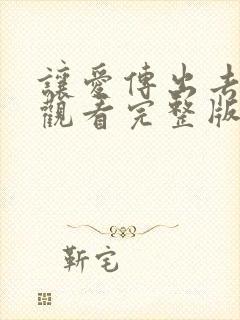 讓愛傳出去
觀看完整版
靳宅